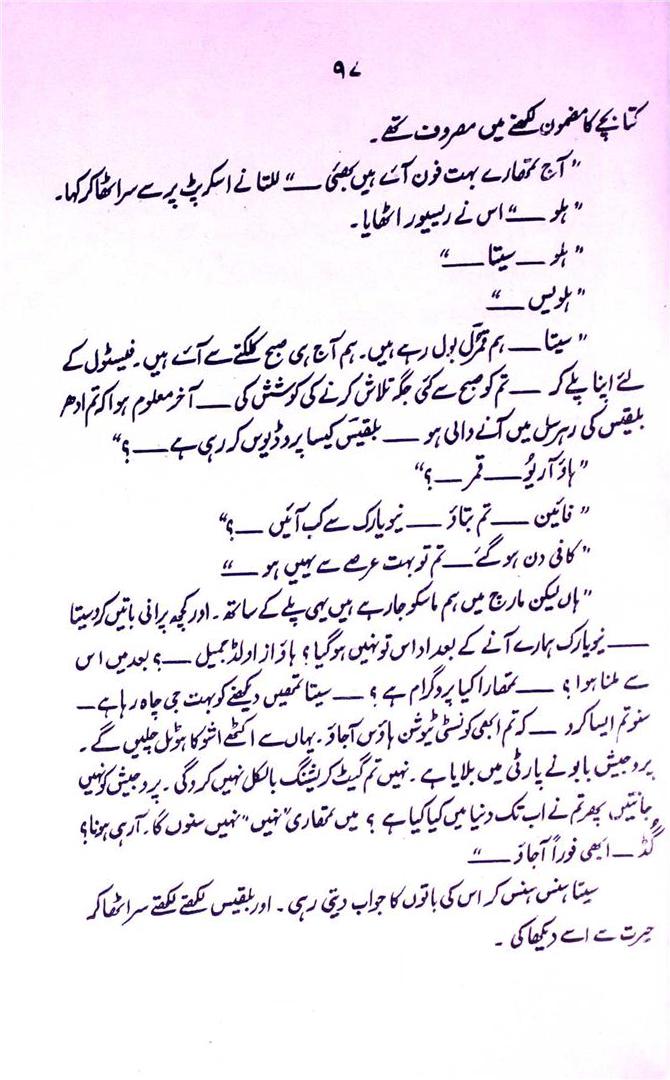 ۹۷
کتابچے کا مضمون لکھنے میں مصروف تھے۔
”آج تمھارے بہت فون آئے ہیں بھئی ——“ للتا نے اسکرپٹ پر سے سر اٹھا کر کہا۔
”ہلو ——“ اس نے ریسیور اٹھایا۔
”ہلو —— سیتا ——“
”ہلو یس ——“
”سیتا —— ہم قمرل بول رہے ہیں۔ ہم آج ہی صبح کلکتے سے آئے ہیں۔ فیسٹول کے
لئے اپنا پلے لے کر —— تم کو صبح سے کئی جگہ تلاش کرنے کی کوشش کی —— آخر معلوم ہوا کہ تم ادھر
بلقیس کی رہرسل میں آنے والی ہو —— بلقیس کیسا پروڈیوس کر رہی ہے —— ؟“
”ہاؤ آر یُو —— قمر — ؟“
”فائین —— تم بتاؤ —— نیویارک سے کب آئیں — ؟“
”کافی دن ہو گئے —— تم تو بہت عرصے سے یہیں ہو ——“
”ہاں لیکن مارچ میں ہم ماسکو جا رہے ہیں یہی پلے کے ساتھ۔ اور کچھ پرانی باتیں کرو سیتا
—— نیویارک ہمارے آنے کے بعد اداس تو نہیں ہو گیا؟ ہاؤ از اولڈ جمیل —— ؟ بعد میں اس
سے ملنا ہوا؟ —— تمھارا کیا پروگرام ہے؟ —— سیتا تمھیں دیکھنے کو بہت جی چاہ رہا ہے ——
سنو تم ایسا کرو —— کہ تم ابھی کونسٹی ٹیوشن ہاؤس آجاؤ۔ یہاں سے اکٹھے اشوکا ہوٹل چلیں گے۔
پروجیش بابو نے پارٹی میں بلایا ہے۔ نہیں تم گیٹ کریشنگ بالکل نہیں کرو گی۔ پروجیش کو نہیں
جانتیں، پھر تم نے اب تک دنیا میں کیا کیا ہے؟ میں تمھاری ”نہیں“ نہیں سنوں گا۔ آ رہی ہو نا؟
گُڈ —— ابھی فوراً آجاؤ ——“
سیتا ہنس ہنس کر اس کی باتوں کا جواب دیتی رہی۔ اور بلقیس لکھتے لکھتے سر اٹھا کر
حیرت سے اسے دیکھا کی۔